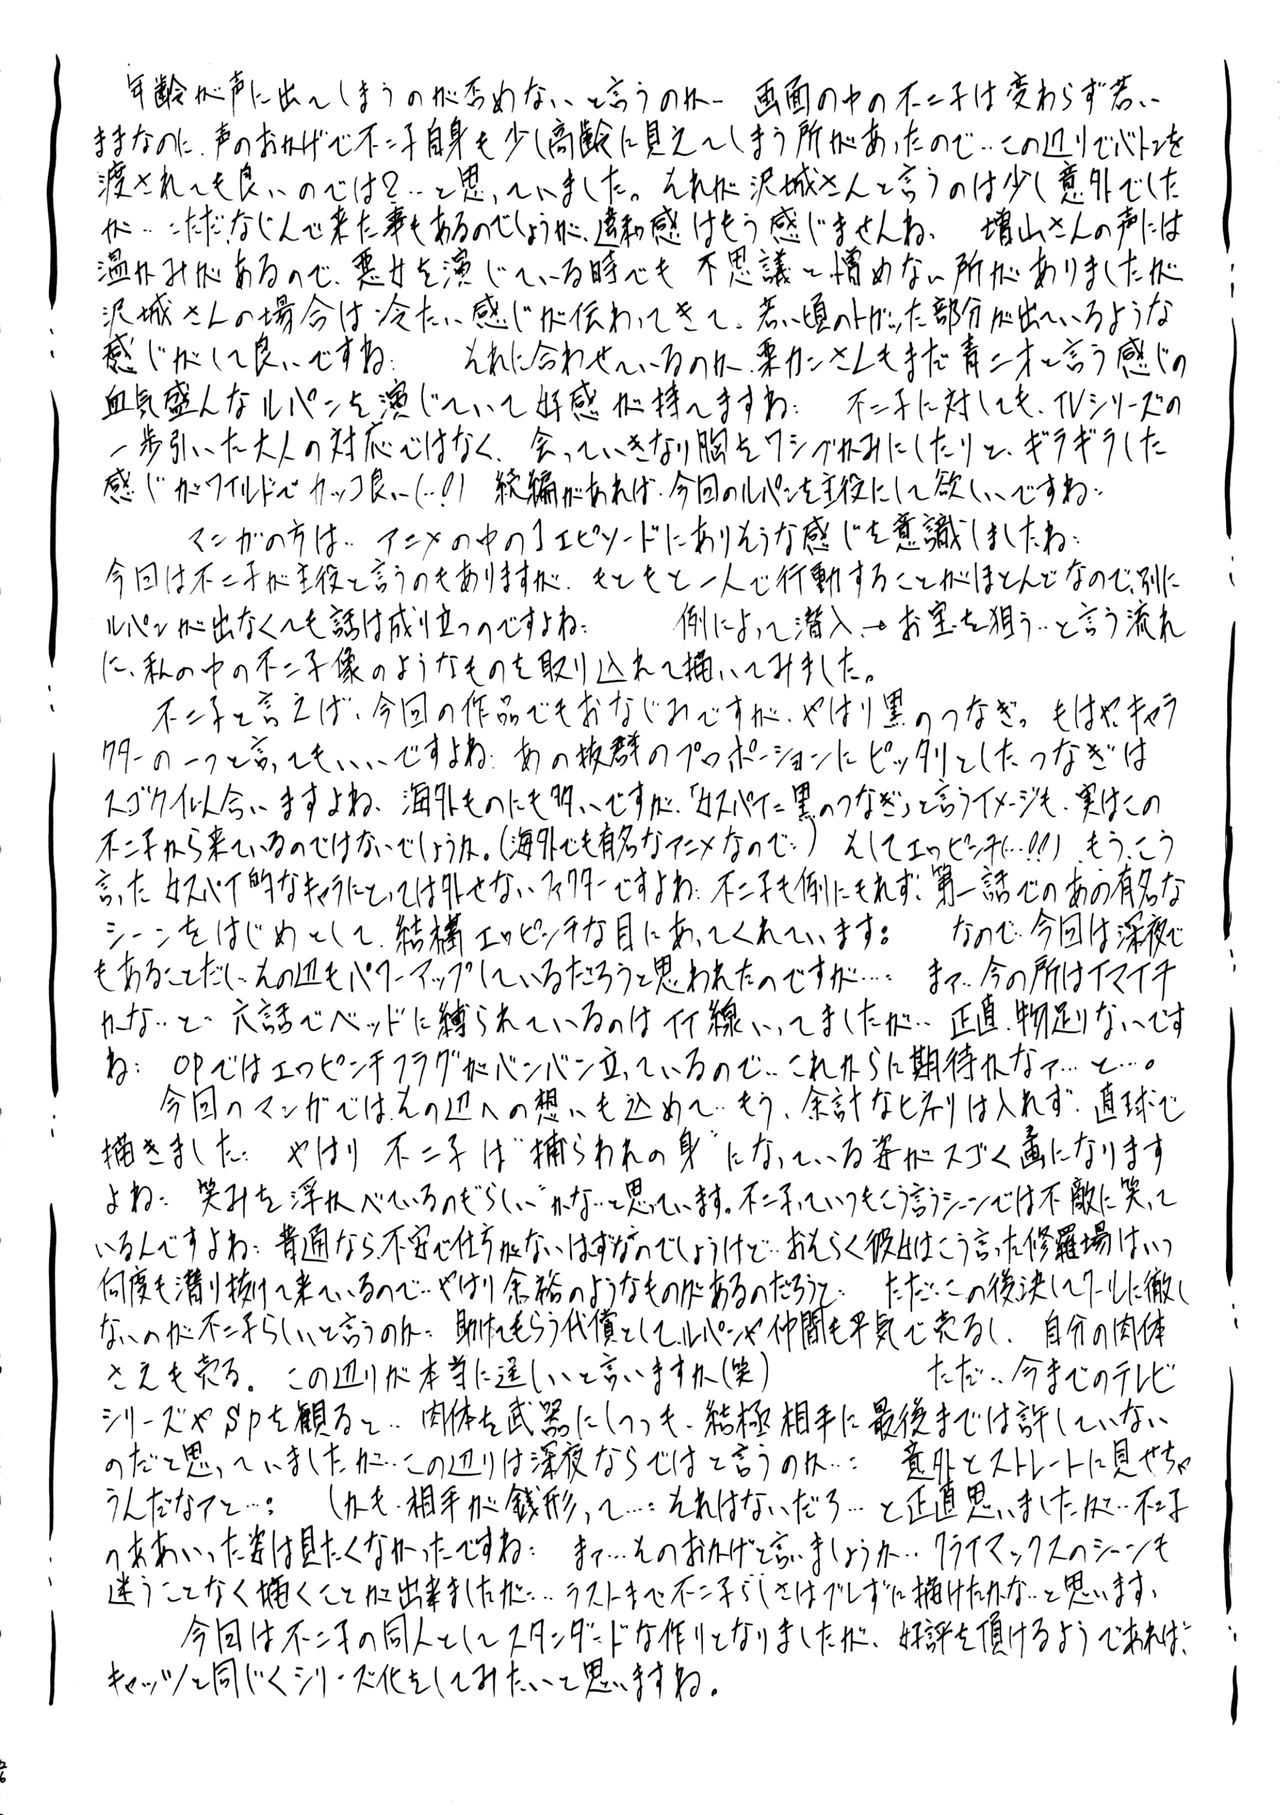 年齢が声に出てしまうのが否めないと言うのか… 画面の中の不二子は変わらず若い
ままなのに、声のおかげで不二子自身も少し高齢に見えてしまう所があったので‥この辺りでバトンを
渡されても良いのでは?‥と思っていました。それが沢城さんと言うのは少し意外でした
が‥ただ、なじんで来た事もあるのでしょうが、違和感はもう感じませんね、 増山さんの声には
温かみがあるので、悪女を演じている時でも 不思議と憎めない所がありましたが
沢城さんの場合は冷たい感じが伝わってきて、若い頃のトガった部分が出ているような
感じがして良いですね: それに合わせているのか、栗カンさんもまだ青二才と言う感じの
血気盛んなルパンを演じていて好感が持てますね: 不二子に対しても、TVシリーズの
一歩引いた大人の対応ではなく、会っていきなり胸をワシヅかみにしたりと、ギラギラした
感じがワイルドでカッコ良い(‥!) 続編があれば、今回のルパンを主役にして欲しいですね‥
マンガの方は‥アニメの中の1エピソードにありそうな感じを意識しましたね:
今回は不二子が主役と言うのもありますが、もともと一人で行動することがほとんどなので、別に
ルパンが出なくても話は成り立つのですよね: 例によって潜入→お宝を狙う‥と言う流れ
に、私の中の不二子像のようなものを取り込れて描いてみました。
不二子と言えば、今回の作品でもおなじみですが、やはり黒のつなぎっ もはや、キャラ
クターの一つと言ってもいいですよね: あの抜群のプロポーションにピッタリとしたつなぎは
スゴク似合いますよね、海外ものにも多いですが、「女スパイ=黒のつなぎ」と言うイメージも、実はこの
不二子から来ているのではないでしょうか。(海外でも有名なアニメなので‥) そしてエロピンチ(…!!)、もう、こう
言った女スパイ的なキャラにとっては外せないファクターですよね: 不二子も例にもれず、第一話でのあの有名な
シーンをはじめとして、結構エロピンチな目にあってくれています: なので‥今回は深夜で
もあることだし‥その辺もパワーアップしているだろうと思われたのですが…: まァ‥今の所はイマイチ
かな‥と‥ 六話でベッドに縛られているのはイイ線いってましたが‥ 正直、物足りないです
ね: OPではエロピンチフラグがバンバン立っているので‥これからに期待かなァ…と…。
今回のマンガでは、その辺への想いも込めて‥もう、余計なヒネリは入れず、直球で
描きました: やはり 不二子は"捕らわれの身"になっている姿がスゴく画になります
よね: 笑みを浮かべているのも"らしい"かな‥と思っています。不二子っていつもこう言うシーンでは不敵に笑って
いるんですよね: 普通なら、不安で仕方がないはずなのでしょうけど‥おそらく彼女はこう言った修羅場はいつ
何度も潜り抜けて来ているので‥やはり余裕のようなものがあるのだろうと: ただ‥この後、決してクールに徹し
ないのが不二子らしいと言うのか: 助けてもらう代償として、ルパンや仲間も平気で売るし、自分の肉体
さえも売る。この辺りが本当に逞しいと言いますか(笑) ただ‥今までのテレビ
シリーズやSPを観ると‥肉体を武器にしつつも、結極相手に最後までは許していない
のだと思っていましたが‥この辺りは深夜ならではと言うのか…: 意外とストレートに見せちゃ
うんだなァと…: (しかも、相手が銭形って…: それはないだろ…と正直思いましたが‥不二子
のああいった姿は見たくなかったですね: まァ…そのおかげと言いましょうか‥クライマックスのシーンも
迷うことなく描くことが出来ましたが…ラストまで不二子らしさはブレずに描けたかな‥と思います、
今回は不二子の同人としてスタンダードな作りとなりましたが、好評を頂けるようであれば、
キャッツと同じくシリーズ化をしてみたいと思いますね。